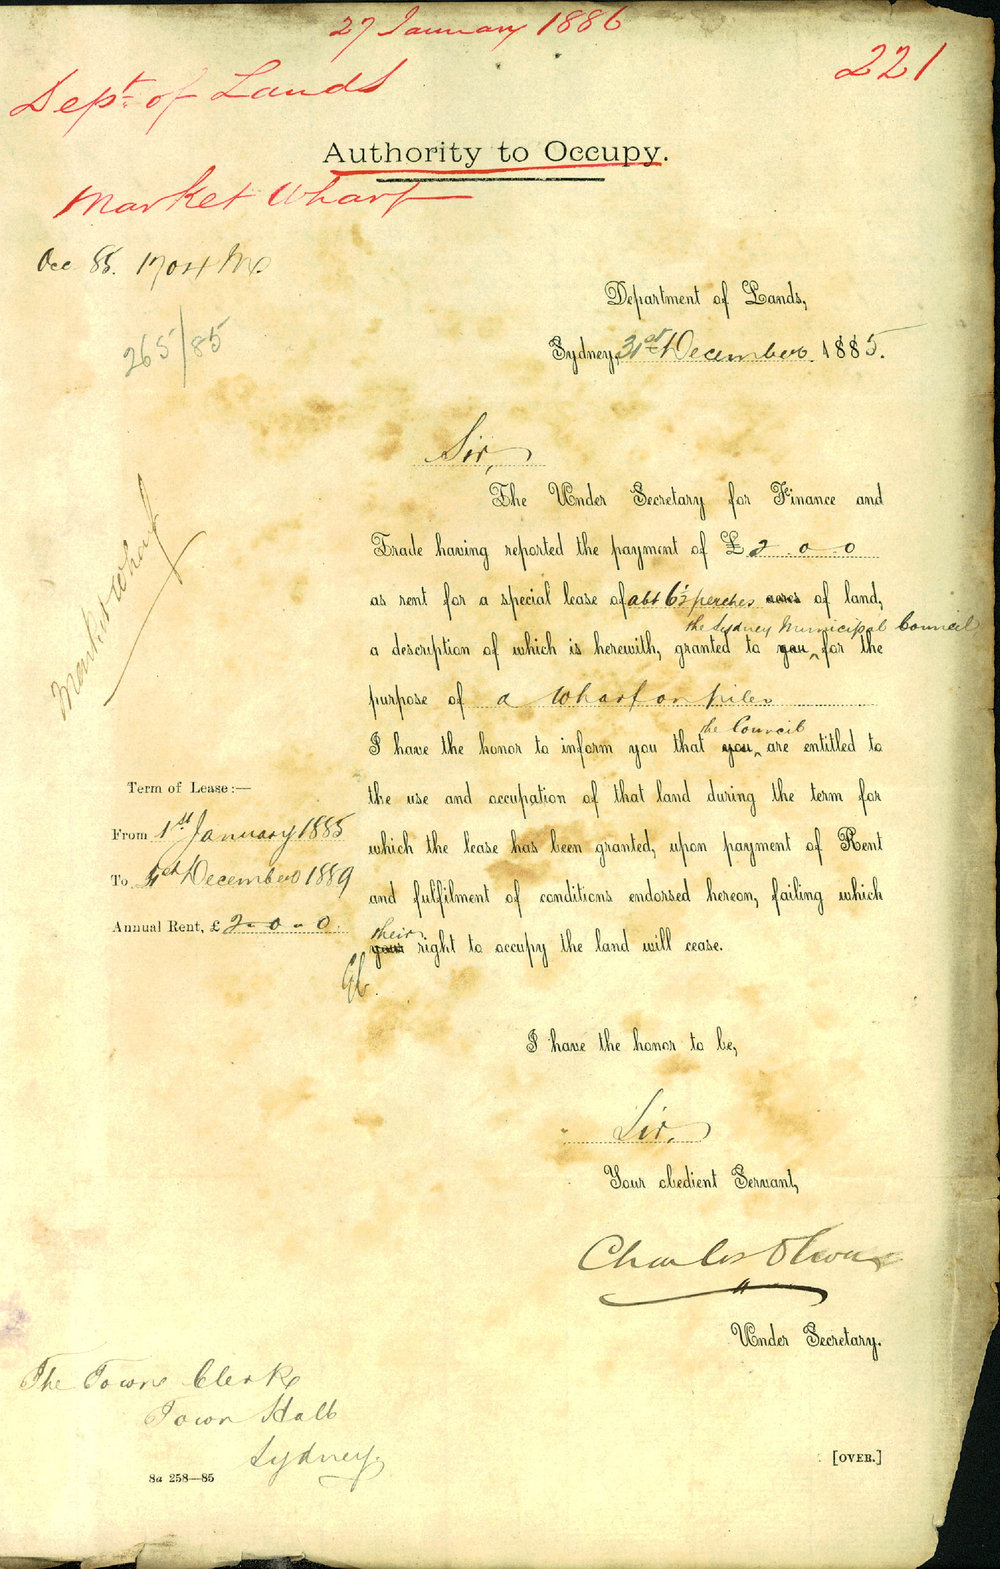 27 January 1886
221
Dept. of Lands
Authority to Occupy.
Market Wharf
Occ 85. 1704 Ms
265/85
Department of Lands,
Sydney, 31st December 1885.
Sir,
Market Wharf
The Under Secretary for Finance and
Trade having reported the payment of £ 2.0.0
as rent for a special lease of abt 6½ perches acres of land,
the Sydney Municipal Council
a description of which is herewith, granted to you ^ for the
purpose of a wharf on piles
the Council
I have the honor to inform you that you ^ are entitled to
the use and occupation of that land during the term for
which the lease has been granted, upon payment of Rent
and fulfilment of conditions endorsed hereon, failing which
their
your right to occupy the land will cease.
Term of Lease:—
From 1st. January 1885
To December 1889
Annual Rent, £ 2.0.0.
I have the honor to be,
Sir,
Your obedient Servant,
Charles Oliver
Under Secretary.
The Town Clerk
Town Hall
Sydney.
8a 258—85
[OVER.]